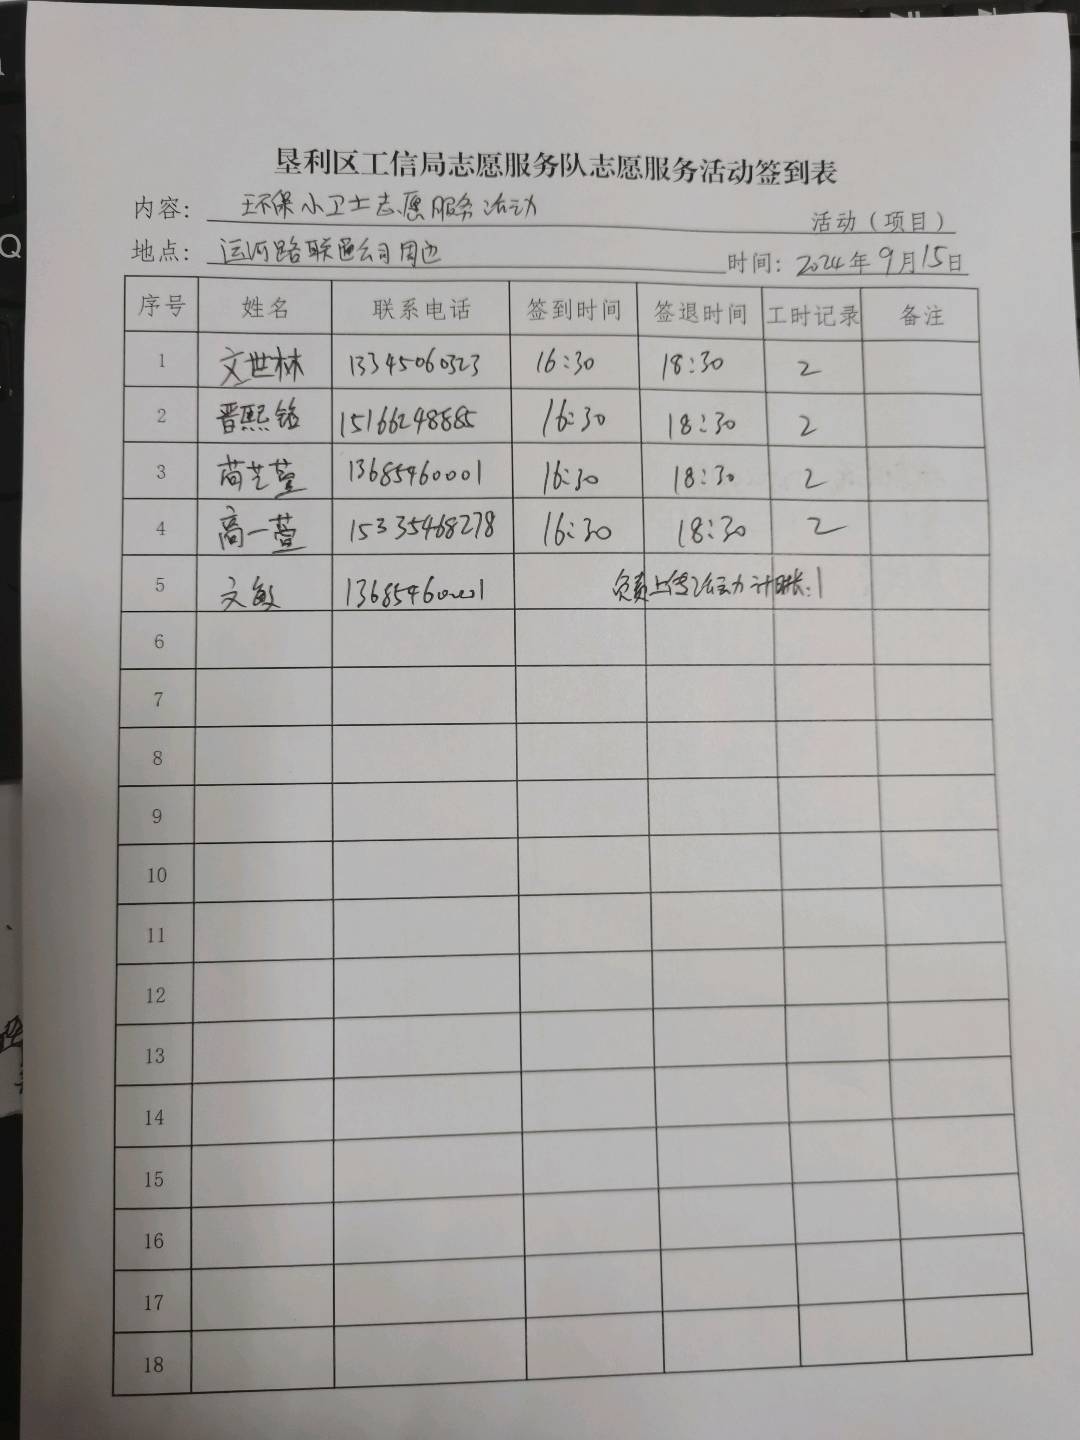 垦利区工信局志愿服务队志愿服务活动签到表
内容： 环保小卫士志愿服务活动 活动（项目）
地点： 运河路联通公司周边 时间：2024年9月15日
序号 姓名 联系电话 签到时间 签退时间 工时记录 备注
1 文世林 13345060323 16:30 18:30 2
2 晋熙铭 15166248885 16:30 18:30 2
3 苘芝萱 13685460001 16:30 18:30 2
4 高一萱 15335468278 16:30 18:30 2
5 文敏 13685460001 负责上传活动 计时长:1
6
7
8
9
10
11
12
13
14
15
16
17
18
Q